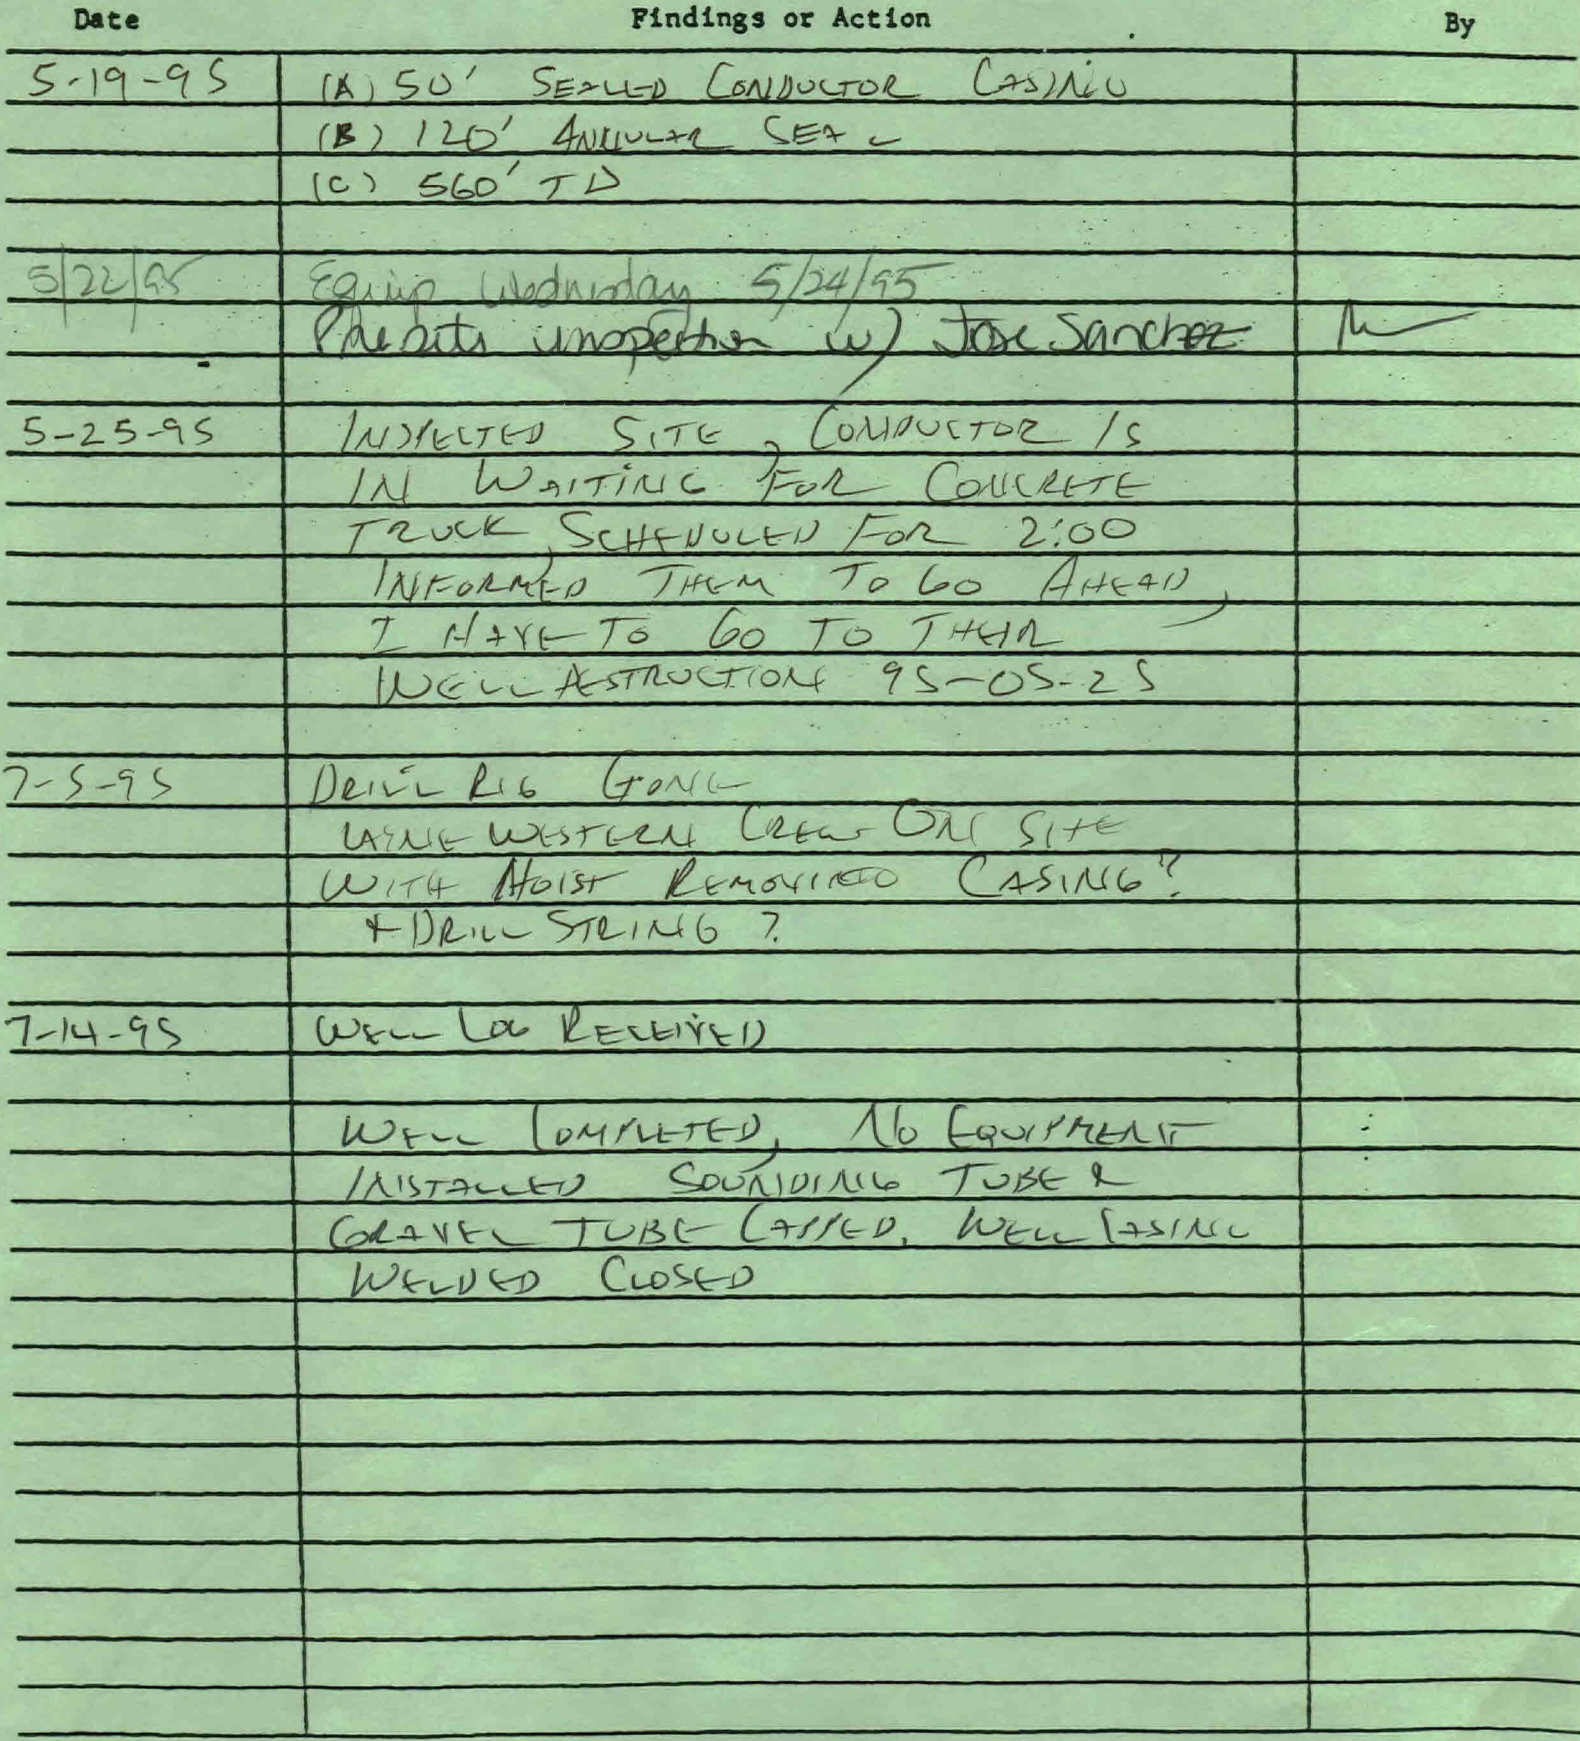 Date Findings or Action By
5-19-95 (A) 50' SEALED CONDUCTOR CASING
(B) 120' ANNULAR SEAL
(C) 560' TD
5/22/95 Equip Wednesday 5/24/95
inspection w/ Jose Sanchez
5-25-95 INSPECTED SITE, CONDUCTOR IS
IN WAITING FOR CONCRETE
TRUCK, SCHEDULED FOR 2:00
INFORMED THEM TO GO AHEAD,
I HAVE TO GO TO THEIR
WELL DESTRUCTION 95-05-25
7-5-95 DRILL RIG GONE
LAYNE WESTERN CREW ON SITE
WITH HOIST REMOVING CASING?
+ DRILL STRING?
7-14-95 WELL LOG RECEIVED
WELL COMPLETED, NO EQUIPMENT
INSTALLED SOUNDING TUBE &
GRAVEL TUBE CAPPED, WELL CASING
WELDED CLOSED